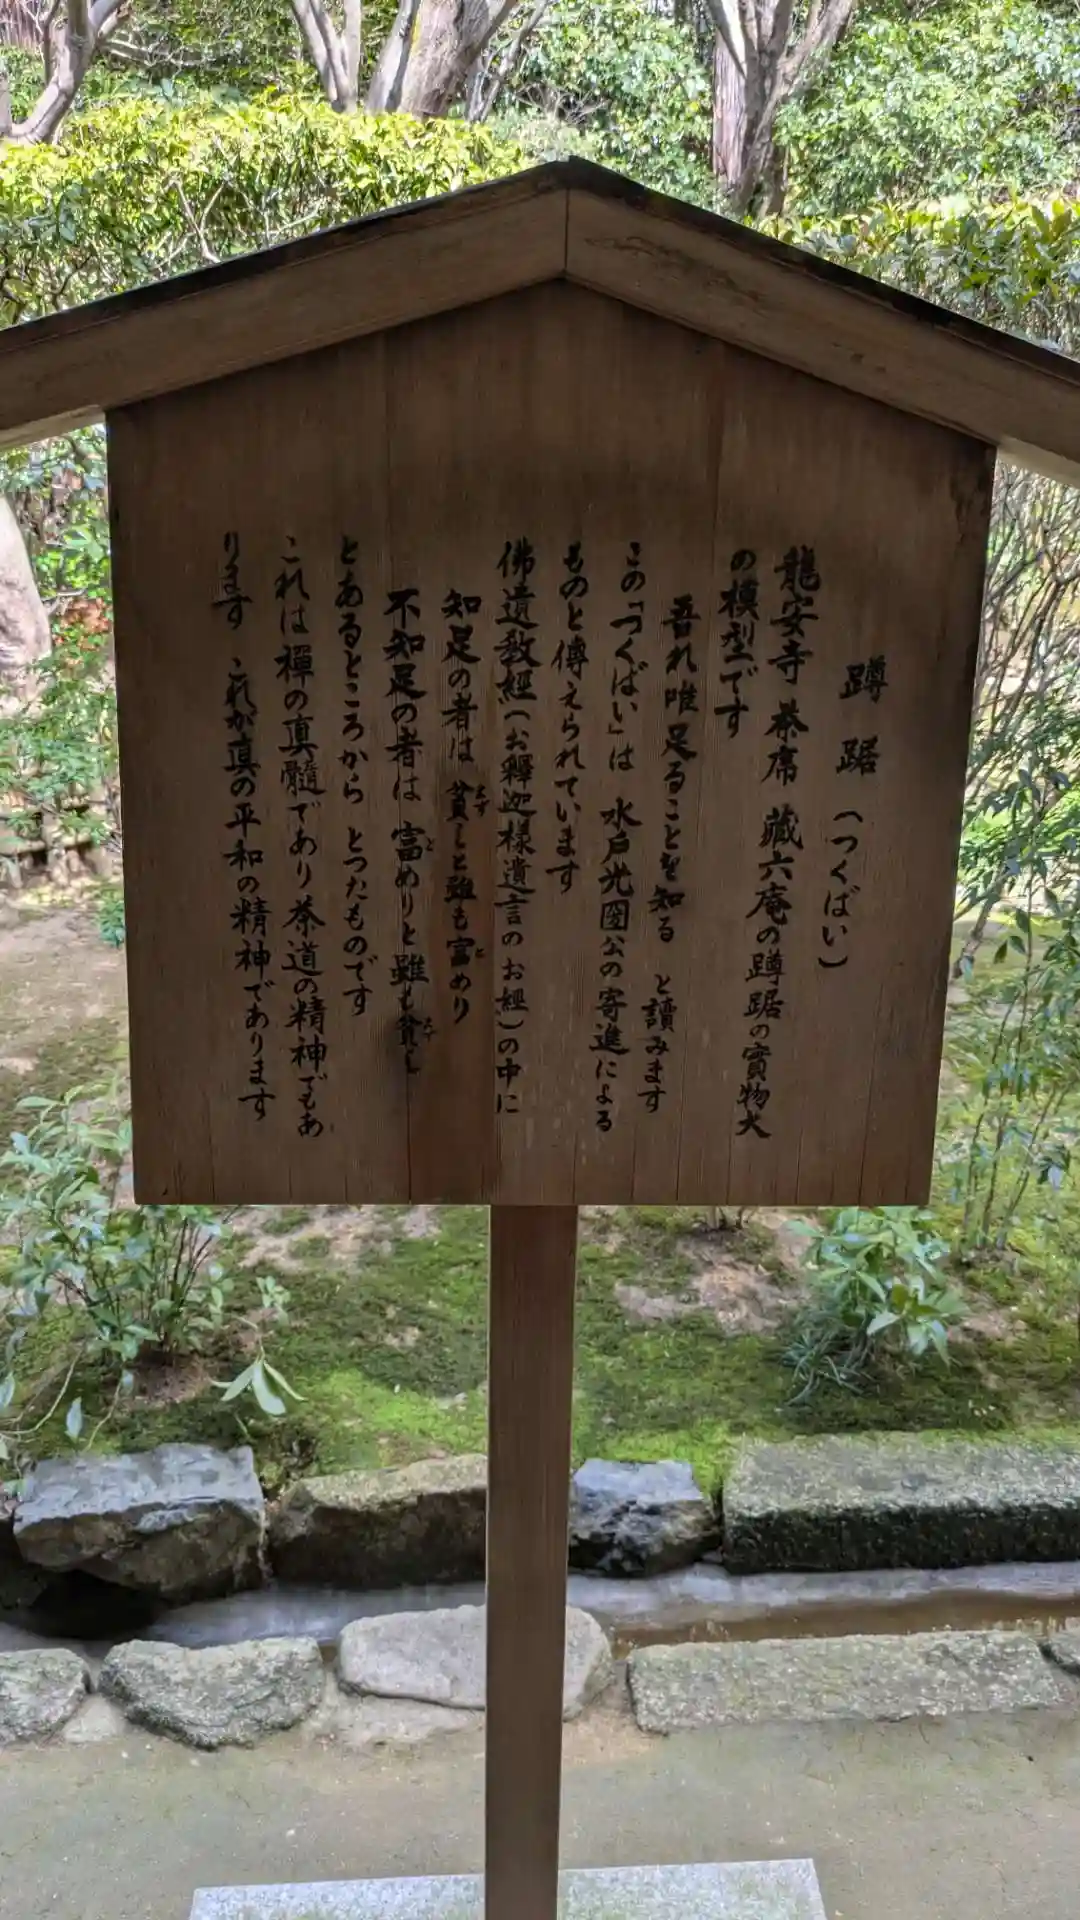 蹲踞（つくばい）
龍安寺 茶席 藏六庵の蹲踞の實物大
の模型です
吾れ唯足ることを知る と讀みます
この「つくばい」は 水戸光圀公の寄進による
ものと傳えられています
佛遺教經（お釋迦様遺言のお經）の中に
知足の者は 貧しと雖も富めり
不知足の者は 富めりと雖も貧し
とあるところから とつたものです
これは禪の真髓であり茶道の精神でもあ
ります これが真の平和の精神であります